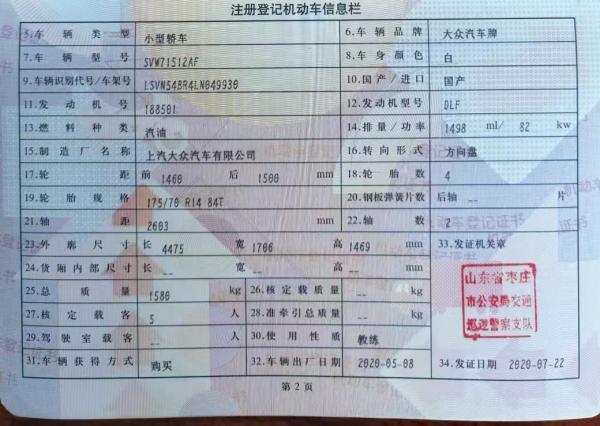 注册登记机动车信息栏
5.车辆类型 小型轿车 6.车辆品牌 大众汽车牌
7.车辆型号 SVW71512AF 8.车身颜色 白
9.车辆识别代号/车架号 LSVN54BR4LN049930 10.国产/进口 国产
11.发动机号 188501 12.发动机型号 DLF
13.燃料种类 汽油 14.排量/功率 1498 ml/ 82 kw
15.制造厂名称 上汽大众汽车有限公司 16.转向形式 方向盘
17.轮距 前 1460 后 1500 mm 18.轮胎数 4
19.轮胎规格 175/70 R14 84T 20.钢板弹簧片数 后轴 -- 片
21.轴距 2603 mm 22.轴数 2
23.外廓尺寸 长 4475 宽 1706 高 1469 mm 33.发证机关章
24.货厢内部尺寸 长 -- 宽 -- 高 -- mm
25.总质量 1580 kg 26.核定载质量 -- kg
27.核定载客 5 人 28.准牵引总质量 -- kg
29.驾驶室载客 -- 人 30.使用性质 教练
31.车辆获得方式 购买 32.车辆出厂日期 2020-05-08 34.发证日期 2020-07-22
山东省枣庄
市公安局交通
巡逻警察支队
第2页